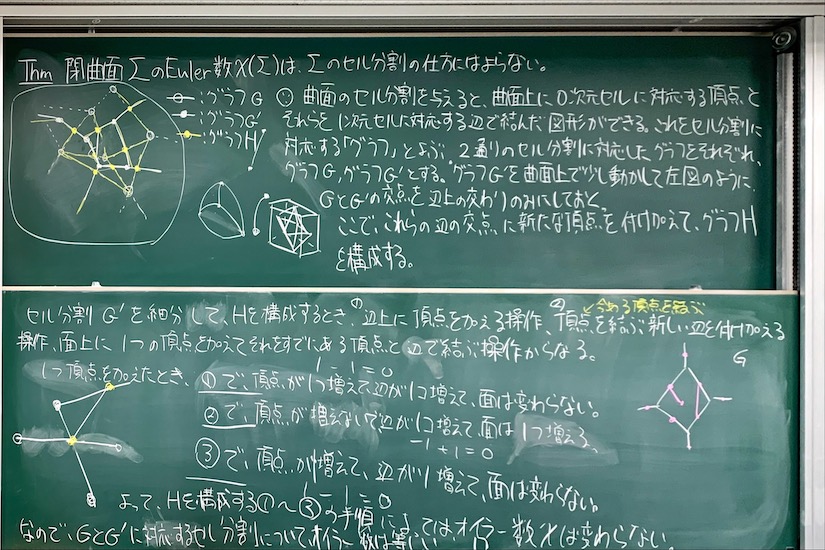 Thm 閉曲面 Σ のEuler数 χ(Σ)は、Σ のセル分割の仕方にはよらない。
:グラフG
:グラフG'
:グラフH
∵ 曲面のセル分割を与えると、曲面上に0次元セルに対応する頂点と
それらを1次元セルに対応する辺で結んだ図形ができる。これをセル分割に
対応する「グラフ」とよぶ。2通りのセル分割に対応したグラフをそれぞれ、
グラフG, グラフG'とする。グラフG'を曲面上で少し動かして左図のように、
GとG'の交点を辺上の交わりのみにしておく。
ここで、これらの辺の交点に新たな頂点を付け加えて、グラフH
を構成する。
セル分割 G'を細分して、Hを構成するとき、① 辺上に頂点を加える操作、② 頂点を結ぶ新しい辺を付け加える
今ある頂点を結ぶ
操作、面上に1つの頂点を加えてそれをすでにある頂点と辺で結ぶ操作からなる。
G
1つ頂点を加えたとき、
1 - 1 = 0
① で、頂点が1つ増えて辺が1つ増えて、面は変わらない。
② で、頂点が増えないで辺が1つ増えて、面は1つ増える。
-1 + 1 = 0
③ で、頂点が増えて、辺が1増えて、面は変わらない。
1 - 1 = 0
よって、Hを構成する①〜③の手順によってはオイラー数χは変わらない。
なので、GとG'に対応するセル分割について、オイラー数は等しい